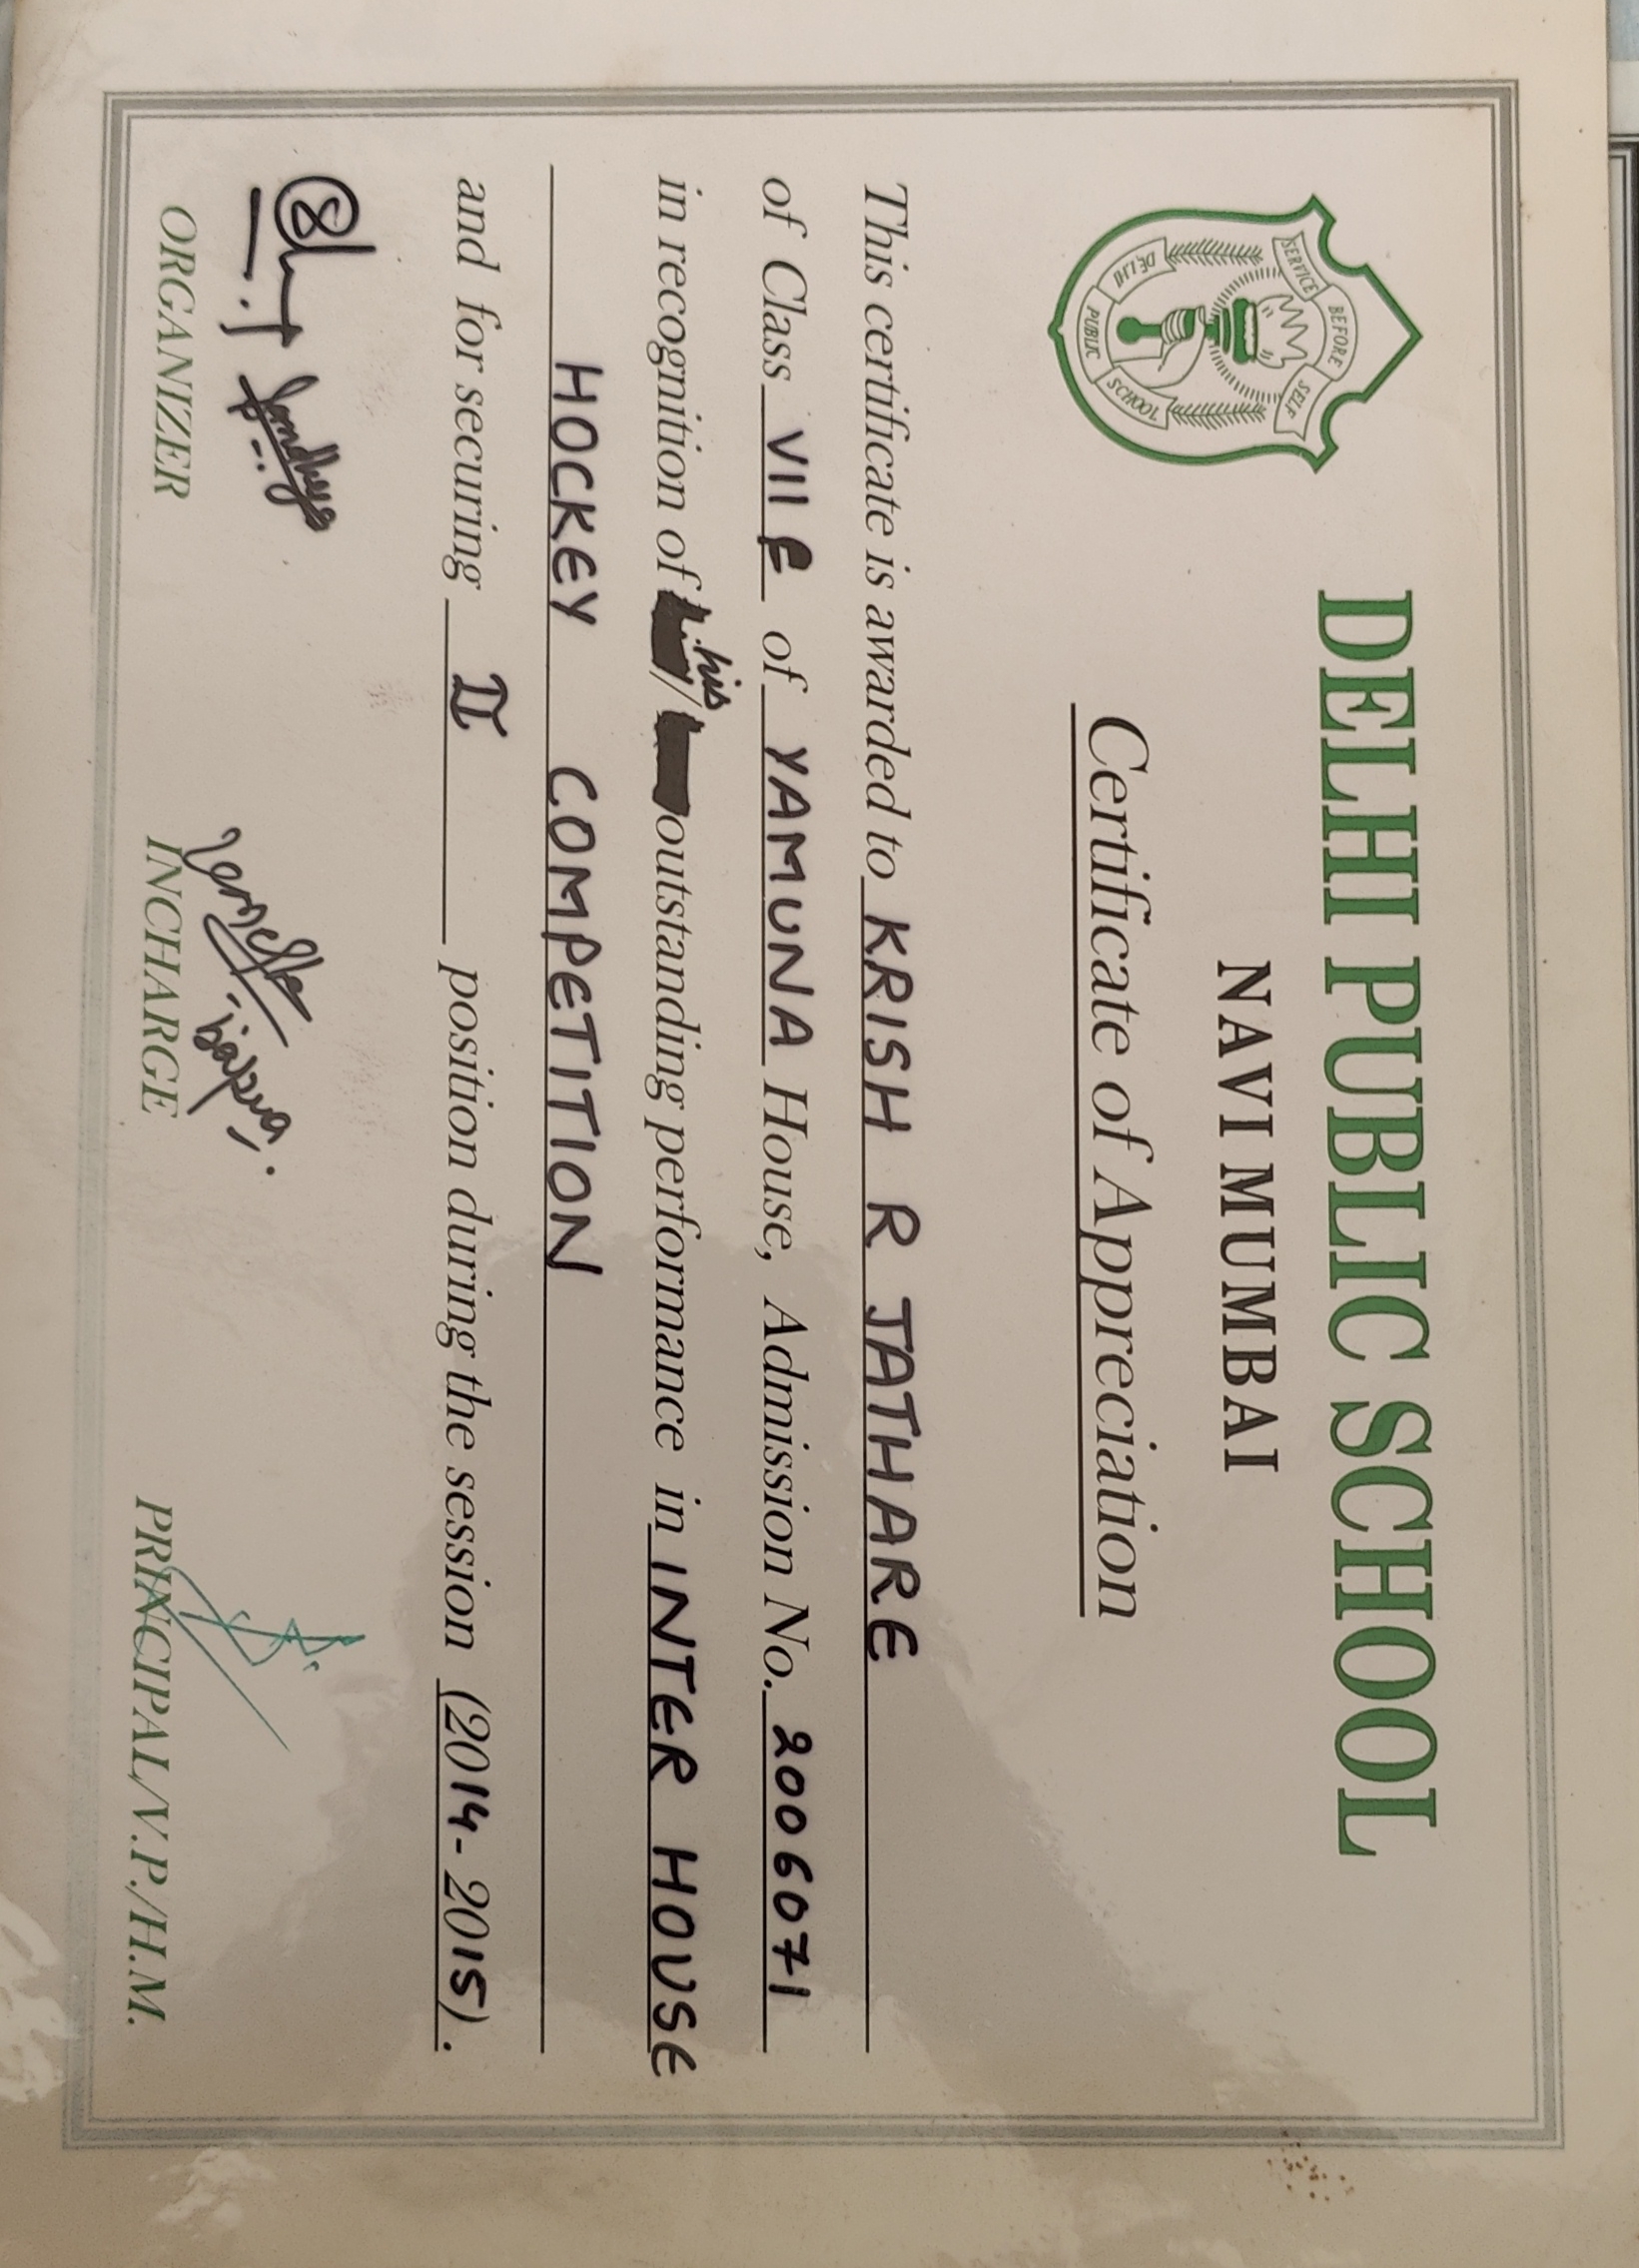 DELHI PUBLIC SCHOOL
NAVI MUMBAI
SERVICE BEFORE SELF
DELHI PUBLIC SCHOOL
Certificate of Appreciation
This certificate is awarded to KRISH R JATHARE
of Class VII of YAMUNA House, Admission No. 2006071
in recognition of his / outstanding performance in INTER HOUSE
HOCKEY COMPETITION
and for securing II position during the session (2014-2015).
ORGANIZER INCHARGE PRINCIPAL/V.P./H.M.